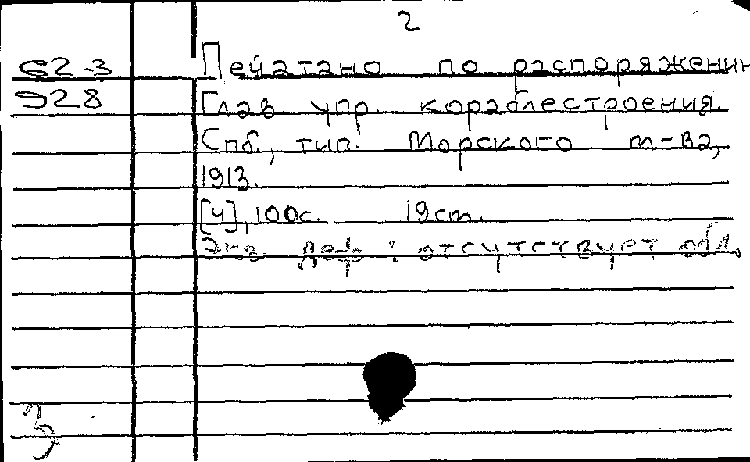 2
62-3
928
Печатано по распоряжению
Глав упр. кораблестроения.
Спб., тип. Морского м-ва,
1913.
[4], 100с. 19см.
Экз деф: отсутствует обл.